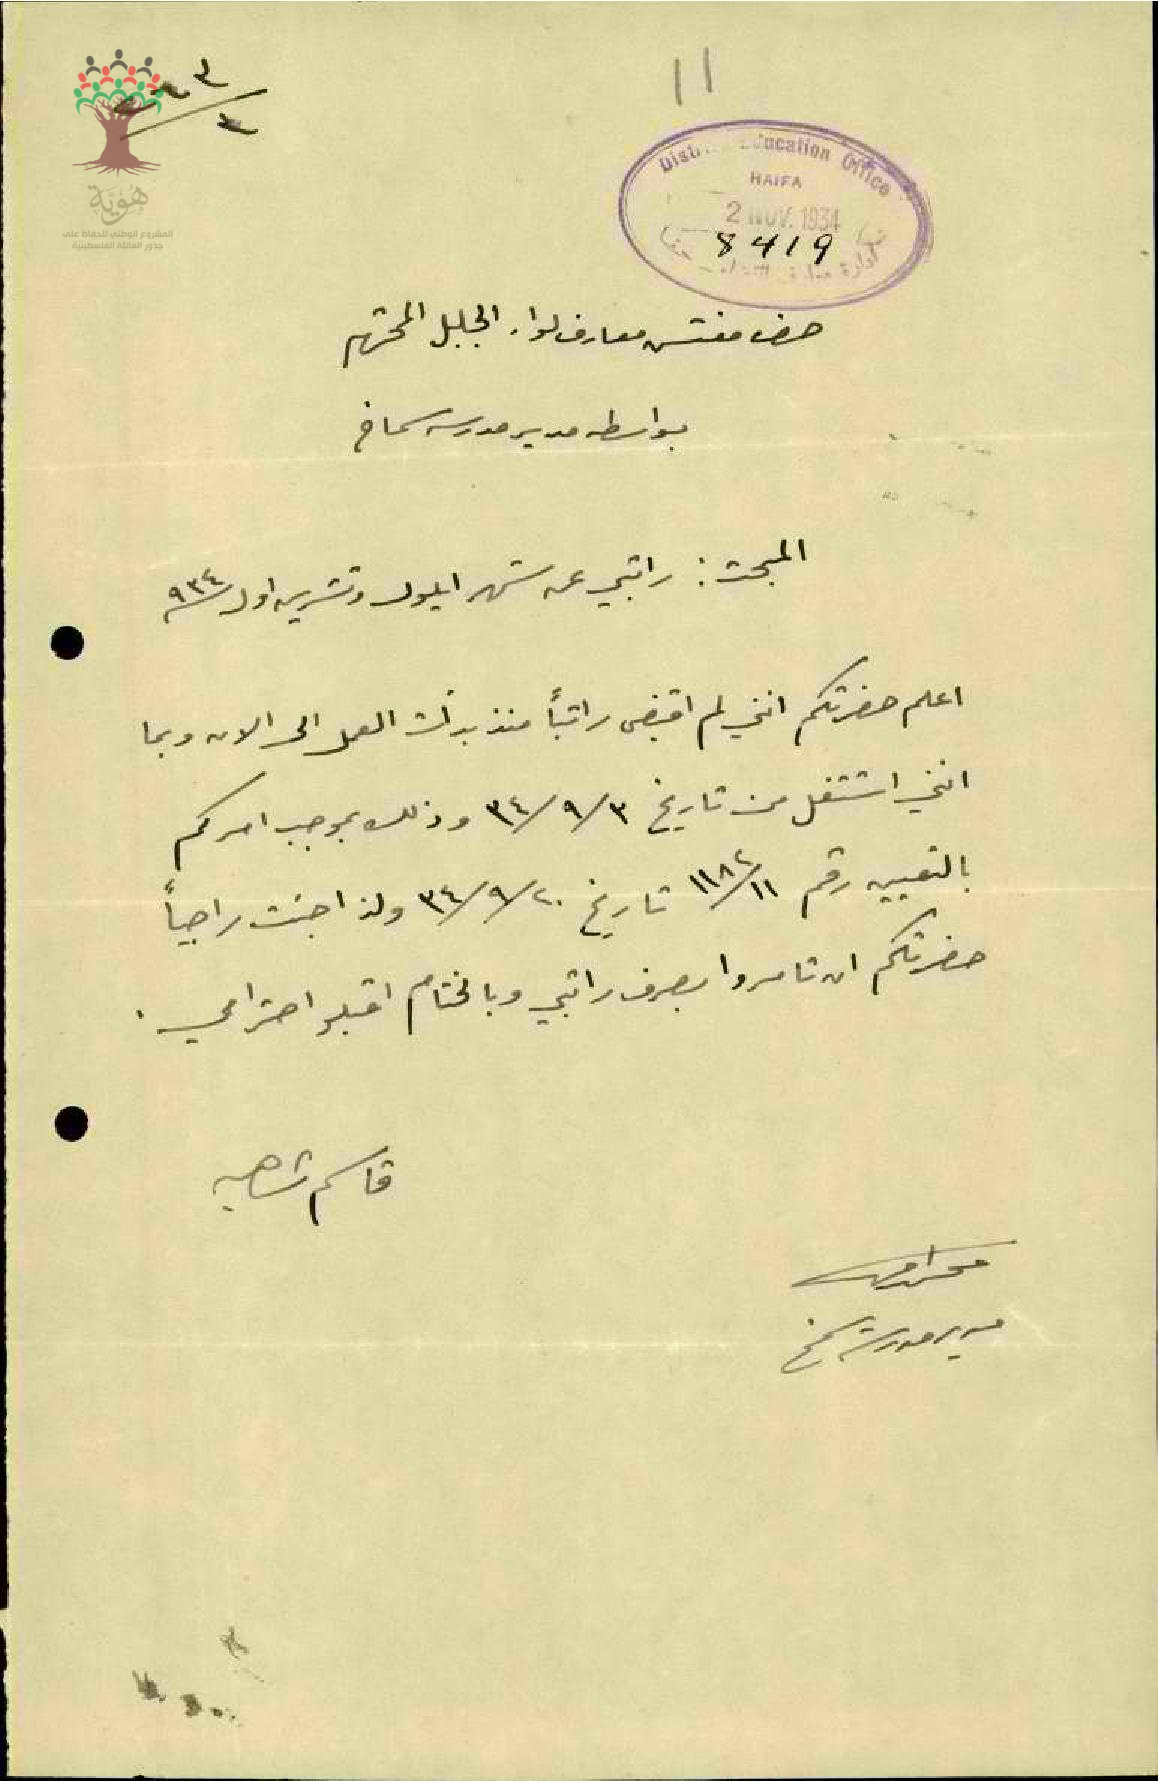 11
District Education Office
HAIFA
2 NOV. 1934
8419
هُويَّة
المشروع الوطني للحفاظ على
جذور العائلة الفلسطينية
حضرة مفتش معارف لواء الجليل المحترم
بواسطة مدير مدرسة سماخ
المبحث: راتبي عن شهر ايلول وتشرين اول ٩٣٤
اعلم حضرتكم انني لم اقبض راتباً منذ بدأت العمل الى الان وبما
انني اشتغل من تاريخ ٣/٩/٣٤ وذلك بموجب امركم
بالتعيين رقم ١١/١١٨٢ تاريخ ٢٠/٩/٣٤ ولذا جئت راجياً
حضرتكم ان تامروا بصرف راتبي وبالختام اقبلوا احترامي .
قاسم شاهين
مدير مدرسة سمخ